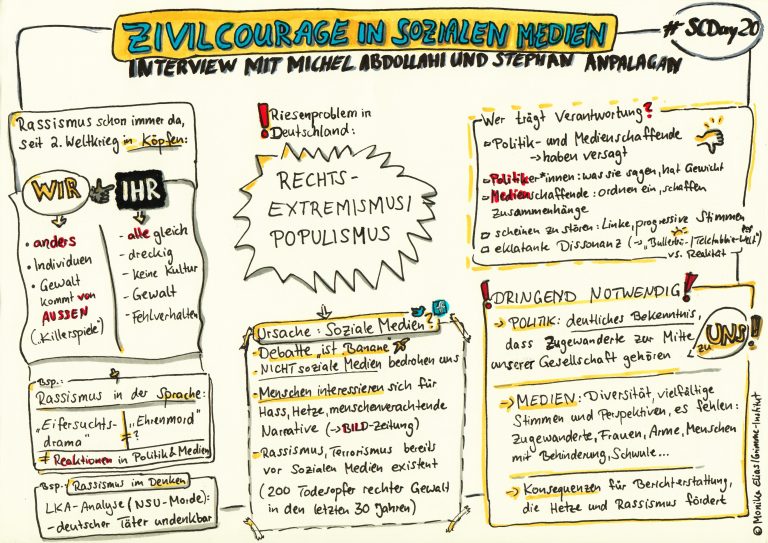 ZIVILCOURAGE IN SOZIALEN MEDIEN
# SCDay20
INTERVIEW MIT MICHEL ABDOLLAHI UND STEPHAN ANPALAGAN
Rassismus schon immer da,
seit 2. Weltkrieg in Köpfen:
WIR
IHR
• anders
• Individuen
• Gewalt
kommt von
AUSSEN
("Killerspiele")
- alle gleich
- dreckig
- keine Kultur
- Gewalt
- Fehlverhalten
Bsp.:
Rassismus in der Sprache:
"Eifersuchts-
drama"
≠?
"Ehrenmord"
≠ Reaktionen in Politik & Medien
Bsp. Rassismus im Denken
LKA-Analyse (NSU-Morde):
- deutscher Täter undenkbar
! Riesenproblem in
Deutschland:
RECHTS-
EXTREMISMUS/
POPULISMUS
Ursache: Soziale Medien?
- Debatte "ist Banane"
- NICHT soziale Medien bedrohen uns
- Menschen interessieren sich für
Hass, Hetze, menschenverachtende
Narrative (→ BILD-Zeitung)
- Rassismus, Terrorismus bereits
vor Sozialen Medien existent
(200 Todesopfer rechter Gewalt
in den letzten 30 Jahren)
Wer trägt Verantwortung?
Politik- und Medienschaffende
→ haben versagt
Politiker*innen: was sie sagen, hat Gewicht
Medienschaffende: ordnen ein, schaffen
Zusammenhänge
scheinen zu stören: Linke, progressive Stimmen
eklatante Dissonanz (→ "Bullerbü-/Teletubbie-Welt")
vs. Realität
! DRINGEND NOTWENDIG !
→ POLITIK: deutliches Bekenntnis,
dass Zugewanderte zur Mitte
unserer Gesellschaft gehören
zu UNS!
→ MEDIEN: Diversität, vielfältige
Stimmen und Perspektiven, es fehlen:
Zugewanderte, Frauen, Arme, Menschen
mit Behinderung, Schwule...
→ Konsequenzen für Berichterstattung,
die Hetze und Rassismus fördert
© Monika Elias/Grimme-Institut